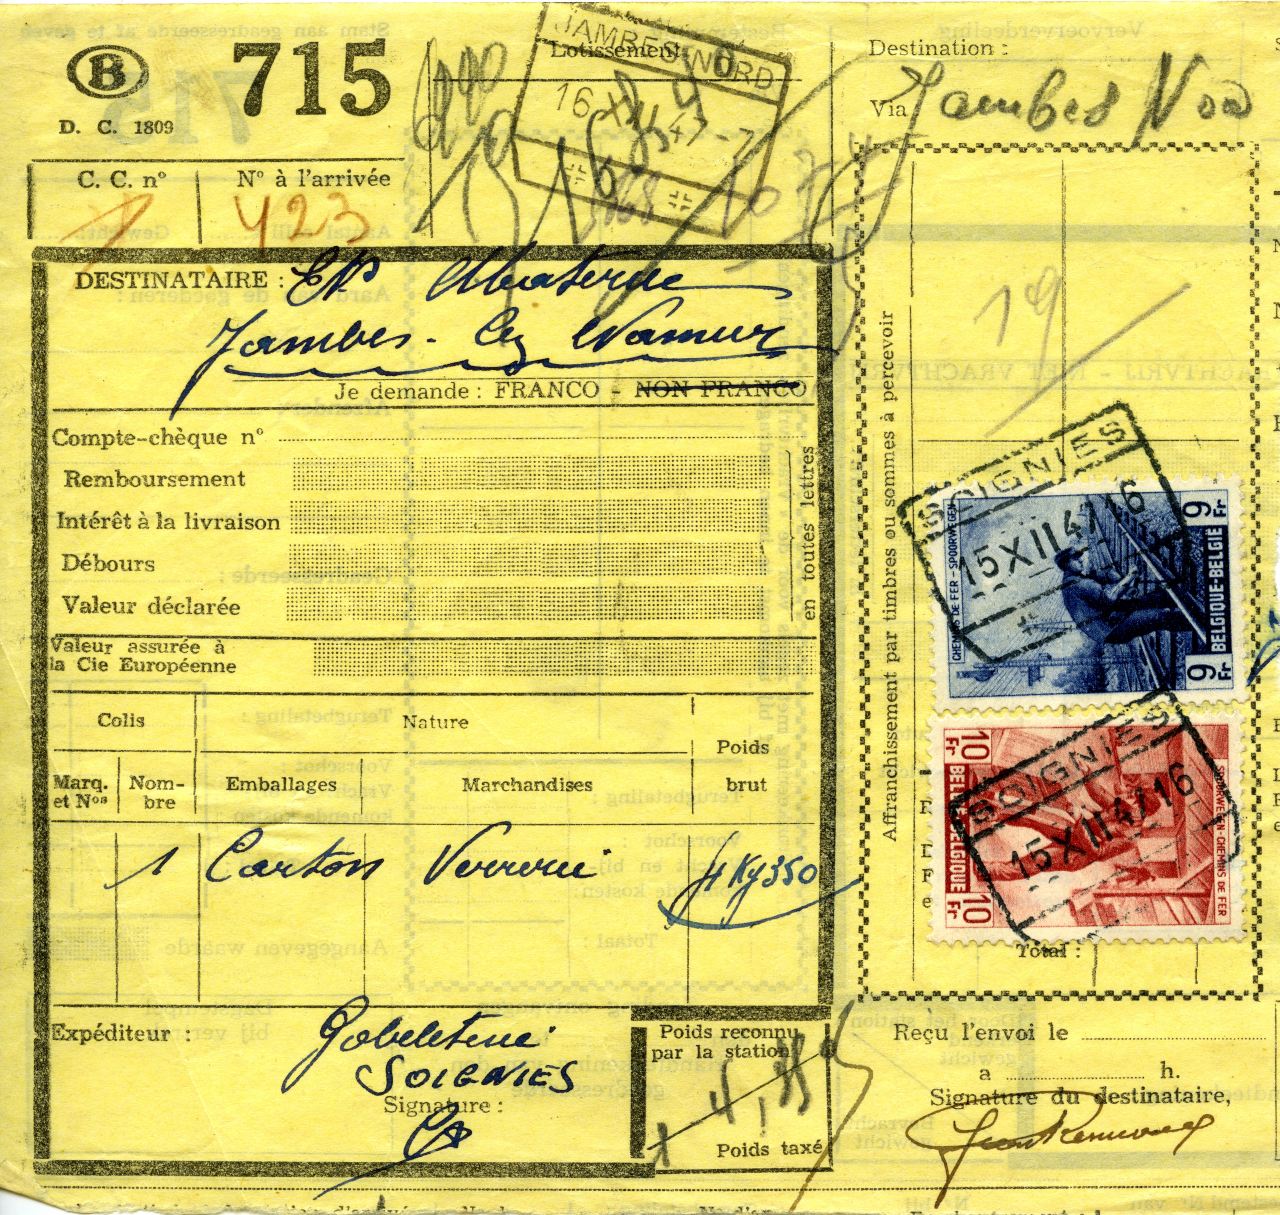 B
715
D. C. 1809
C. C. nº
Nº à l'arrivée
423
Lotissement
JAMBES NORD
16 XII 47-7
Destination :
Via
Jambes Nord
19
DESTINATAIRE :
Jambes - lez Namur
Je demande : FRANCO - NON FRANCO
Compte-chèque nº
Remboursement
Intérêt à la livraison
Débours
Valeur déclarée
en toutes lettres
Valeur assurée à
la Cie Européenne
Colis
Nature
Poids
brut
Marq.
et Nos
Nom-
bre
Emballages
Marchandises
1 Carton Verrerie 4 Kg 350
Expéditeur :
Gobeleterie
SOIGNIES
Signature :
Poids reconnu
par la station
Poids taxé
Affranchissement par timbres ou sommes à percevoir
SOIGNIES
15 XII 47 16
CHEMINS DE FER - SPOORWEGEN
BELGIQUE-BELGIE
9 Fr
9 Fr
SOIGNIES
15 XII 47 16
10 Fr
BELGIE-BELGIQUE
10 Fr
SPOORWEGEN-CHEMINS DE FER
Total :
Reçu l'envoi le
a h.
Signature du destinataire,